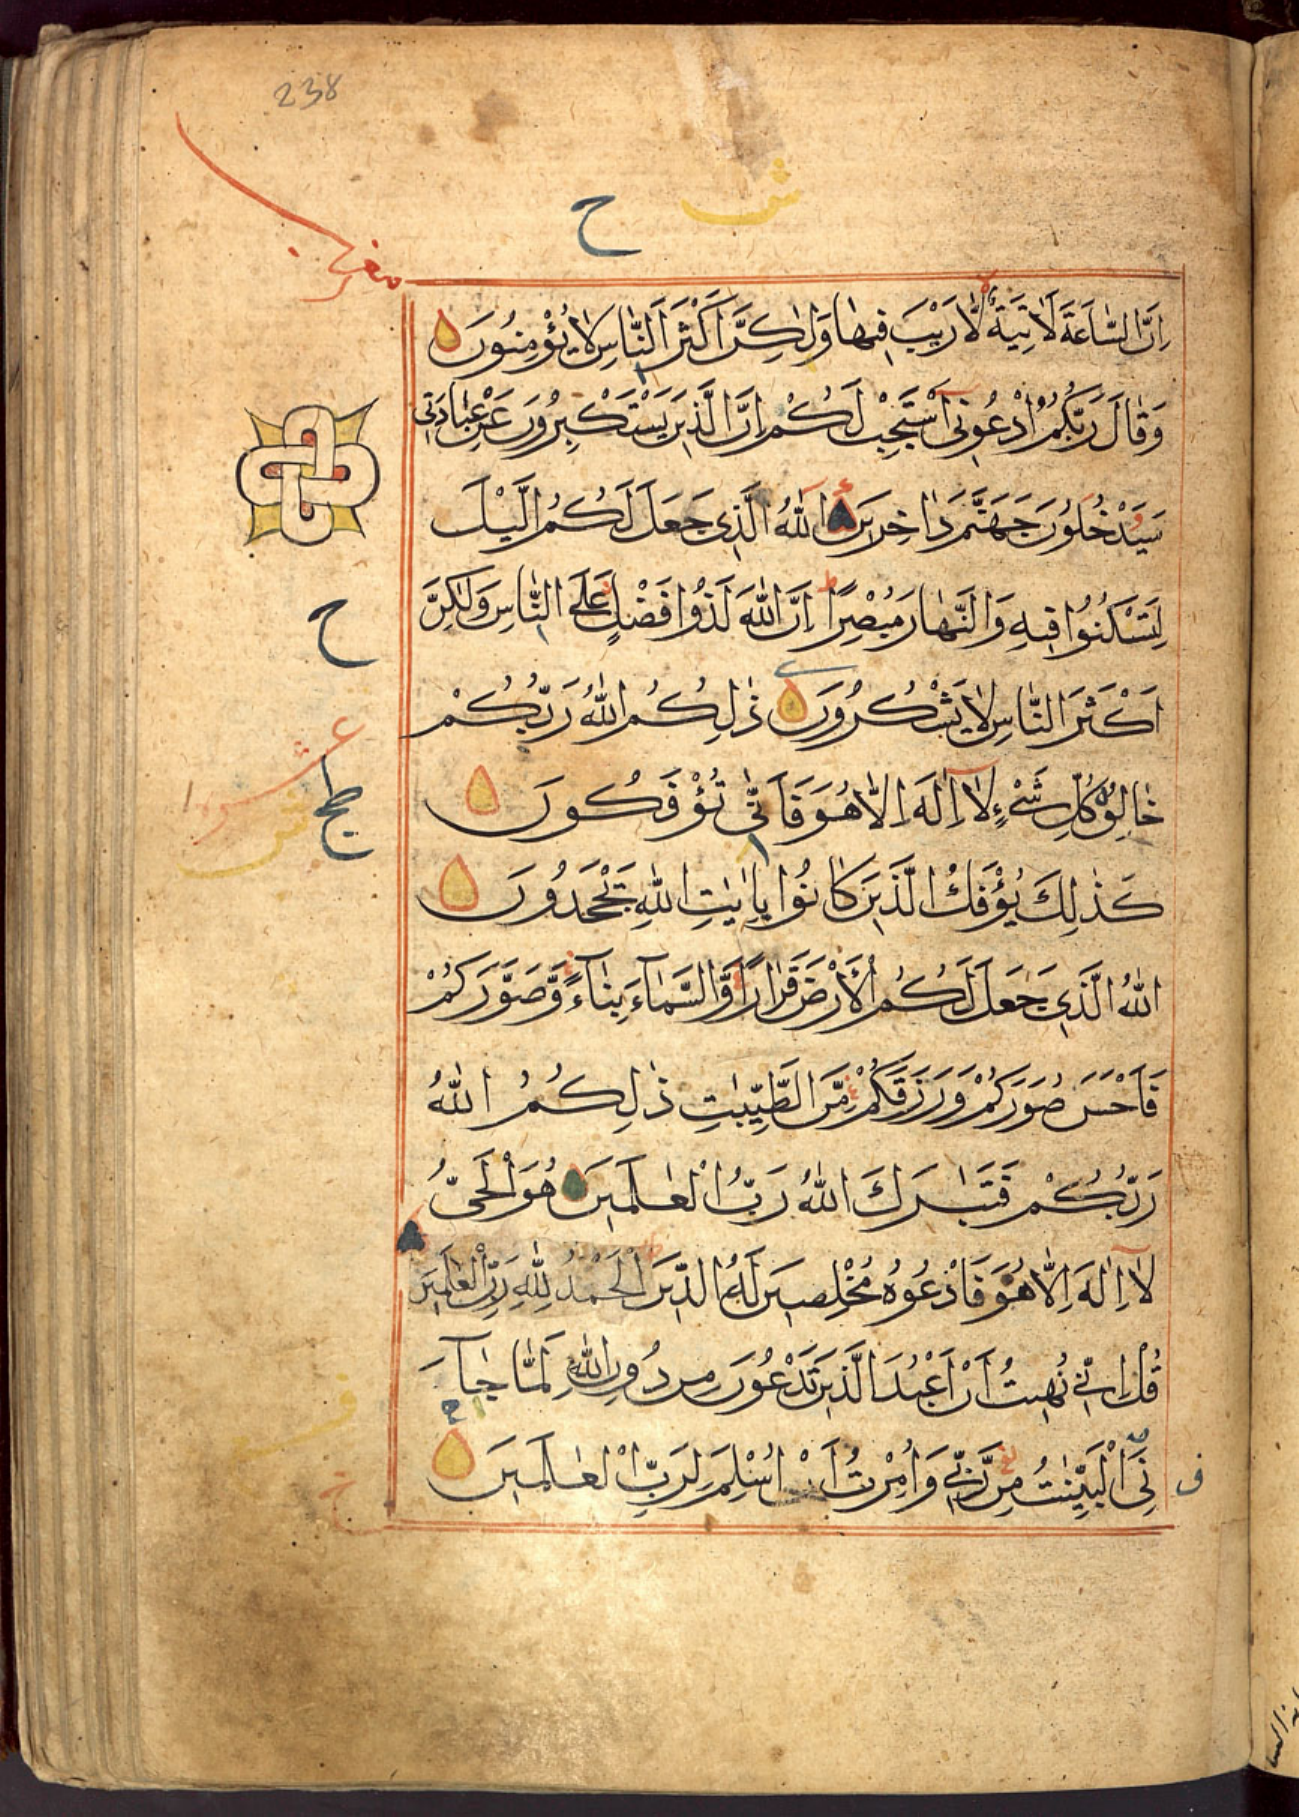 238
ح
اِنَّ السَّاعَةَ لَاٰتِيَةٌ لَّا رَيْبَ فِيهَا وَلٰكِنَّ اَكْثَرَ النَّاسِ لَا يُؤْمِنُونَ
وَقَالَ رَبُّكُمُ ادْعُونِى اَسْتَجِبْ لَكُمْ اِنَّ الَّذِينَ يَسْتَكْبِرُونَ عَنْ عِبَادَتِى
سَيَدْخُلُونَ جَهَنَّمَ دَاخِرِينَ اللّٰهُ الَّذِى جَعَلَ لَكُمُ الَّيْلَ
لِتَسْكُنُوا فِيهِ وَالنَّهَارَ مُبْصِرًا اِنَّ اللّٰهَ لَذُوا فَضْلٍ عَلَى النَّاسِ وَلٰكِنَّ
ح
اَكْثَرَ النَّاسِ لَا يَشْكُرُونَ ذٰلِكُمُ اللّٰهُ رَبُّكُمْ
خَالِقُ كُلِّ شَىْءٍ لَا اِلٰهَ اِلَّا هُوَ فَاَنّٰى تُؤْفَكُونَ
كَذٰلِكَ يُؤْفَكُ الَّذِينَ كَانُوا بِاٰيٰتِ اللّٰهِ يَجْحَدُونَ
اللّٰهُ الَّذِى جَعَلَ لَكُمُ الْاَرْضَ قَرَارًا وَّالسَّمَآءَ بِنَآءً وَّصَوَّرَكُمْ
فَاَحْسَنَ صُوَرَكُمْ وَرَزَقَكُمْ مِّنَ الطَّيِّبٰتِ ذٰلِكُمُ اللّٰهُ
رَبُّكُمْ فَتَبٰرَكَ اللّٰهُ رَبُّ الْعٰلَمِينَ هُوَ الْحَىُّ
لَا اِلٰهَ اِلَّا هُوَ فَادْعُوهُ مُخْلِصِينَ لَهُ الدِّينَ اَلْحَمْدُ لِلّٰهِ رَبِّ الْعٰلَمِينَ
قُلْ اِنِّى نُهِيتُ اَنْ اَعْبُدَ الَّذِينَ تَدْعُونَ مِنْ دُونِ اللّٰهِ لَمَّا جَآءَ
نِىَ الْبَيِّنٰتُ مِنْ رَّبِّى وَاُمِرْتُ اَنْ اُسْلِمَ لِرَبِّ الْعٰلَمِينَ